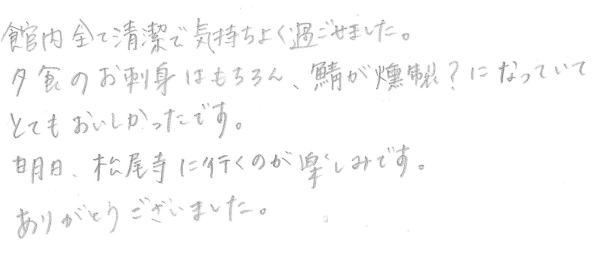 館内全て清潔で気持ちよく過ごせました。
夕食のお刺身はもちろん、鯖が燻製?になっていて
とてもおいしかったです。
明日、松尾寺に行くのが楽しみです。
ありがとうございました。